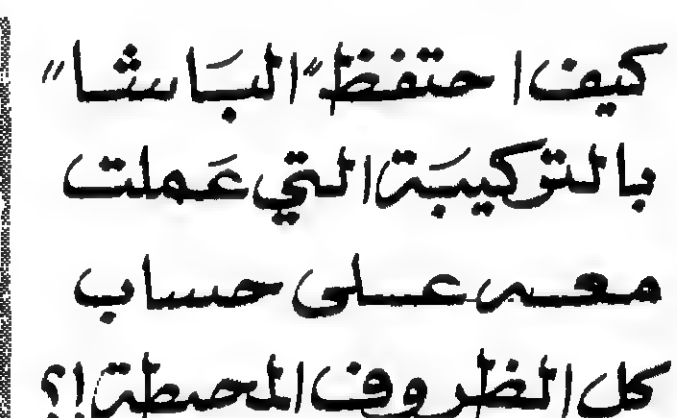 كيف احتفظ "البَاشا"
بالتركيبَة التي عَملت
معه على حساب
كل الظروف المحيطة!؟